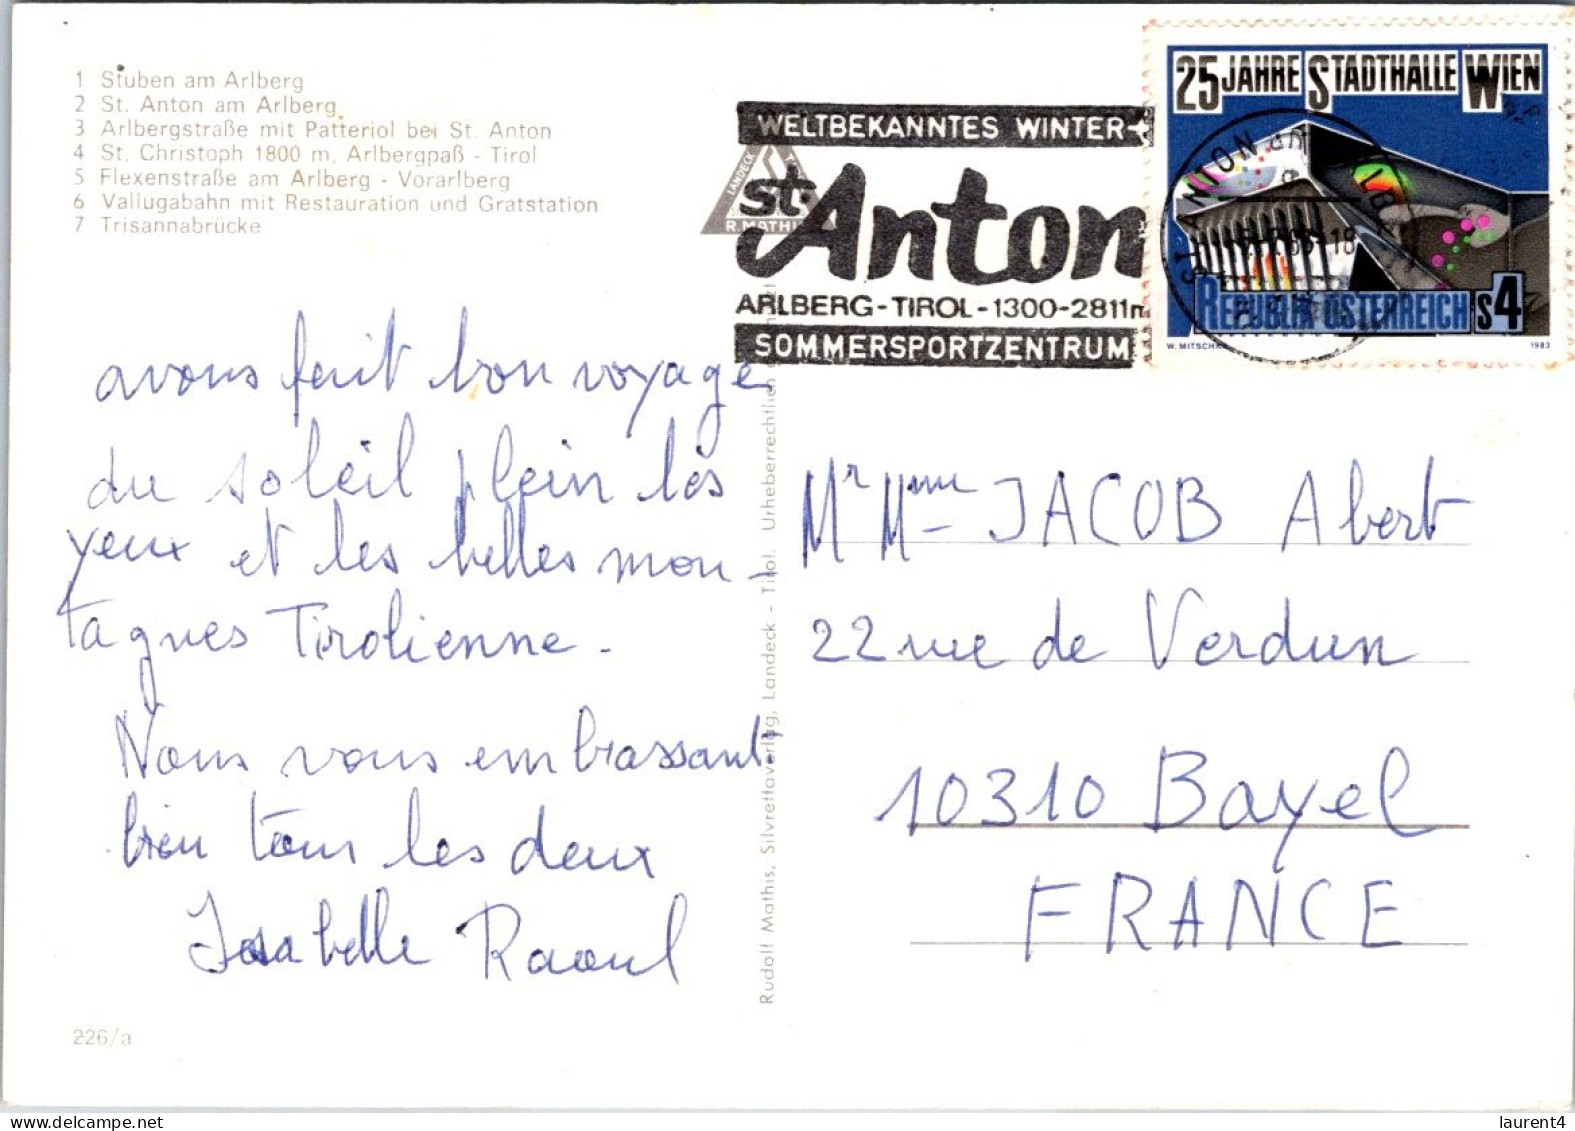 1 Stuben am Arlberg
2 St. Anton am Arlberg
3 Arlbergstraße mit Patteriol bei St. Anton
4 St. Christoph 1800 m, Arlbergpaß - Tirol
5 Flexenstraße am Arlberg - Vorarlberg
6 Vallugabahn mit Restauration und Gratstation
7 Trisannabrücke
WELTBEKANNTES WINTER+
St. Anton
ARLBERG-TIROL-1300-2811m
SOMMERSPORTZENTRUM
LANDECK
R. MATHIS
25 JAHRE STADTHALLE WIEN
REPUBLIK ÖSTERREICH S4
1983
ST. ANTON am
avons fait bon voyage
du soleil plein les
yeux et les belles mon-
tagnes Tirolienne.
Nous vous embrassant
bien tous les deux
Isabelle Raoul
Mr Mme JACOB Albert
22 rue de Verdun
10310 Bayel
FRANCE
Rudolf Mathis, Silvrettaverlag, Landeck - Tirol. Urheberrechtlich
226/a
delcampe.net
laurent4